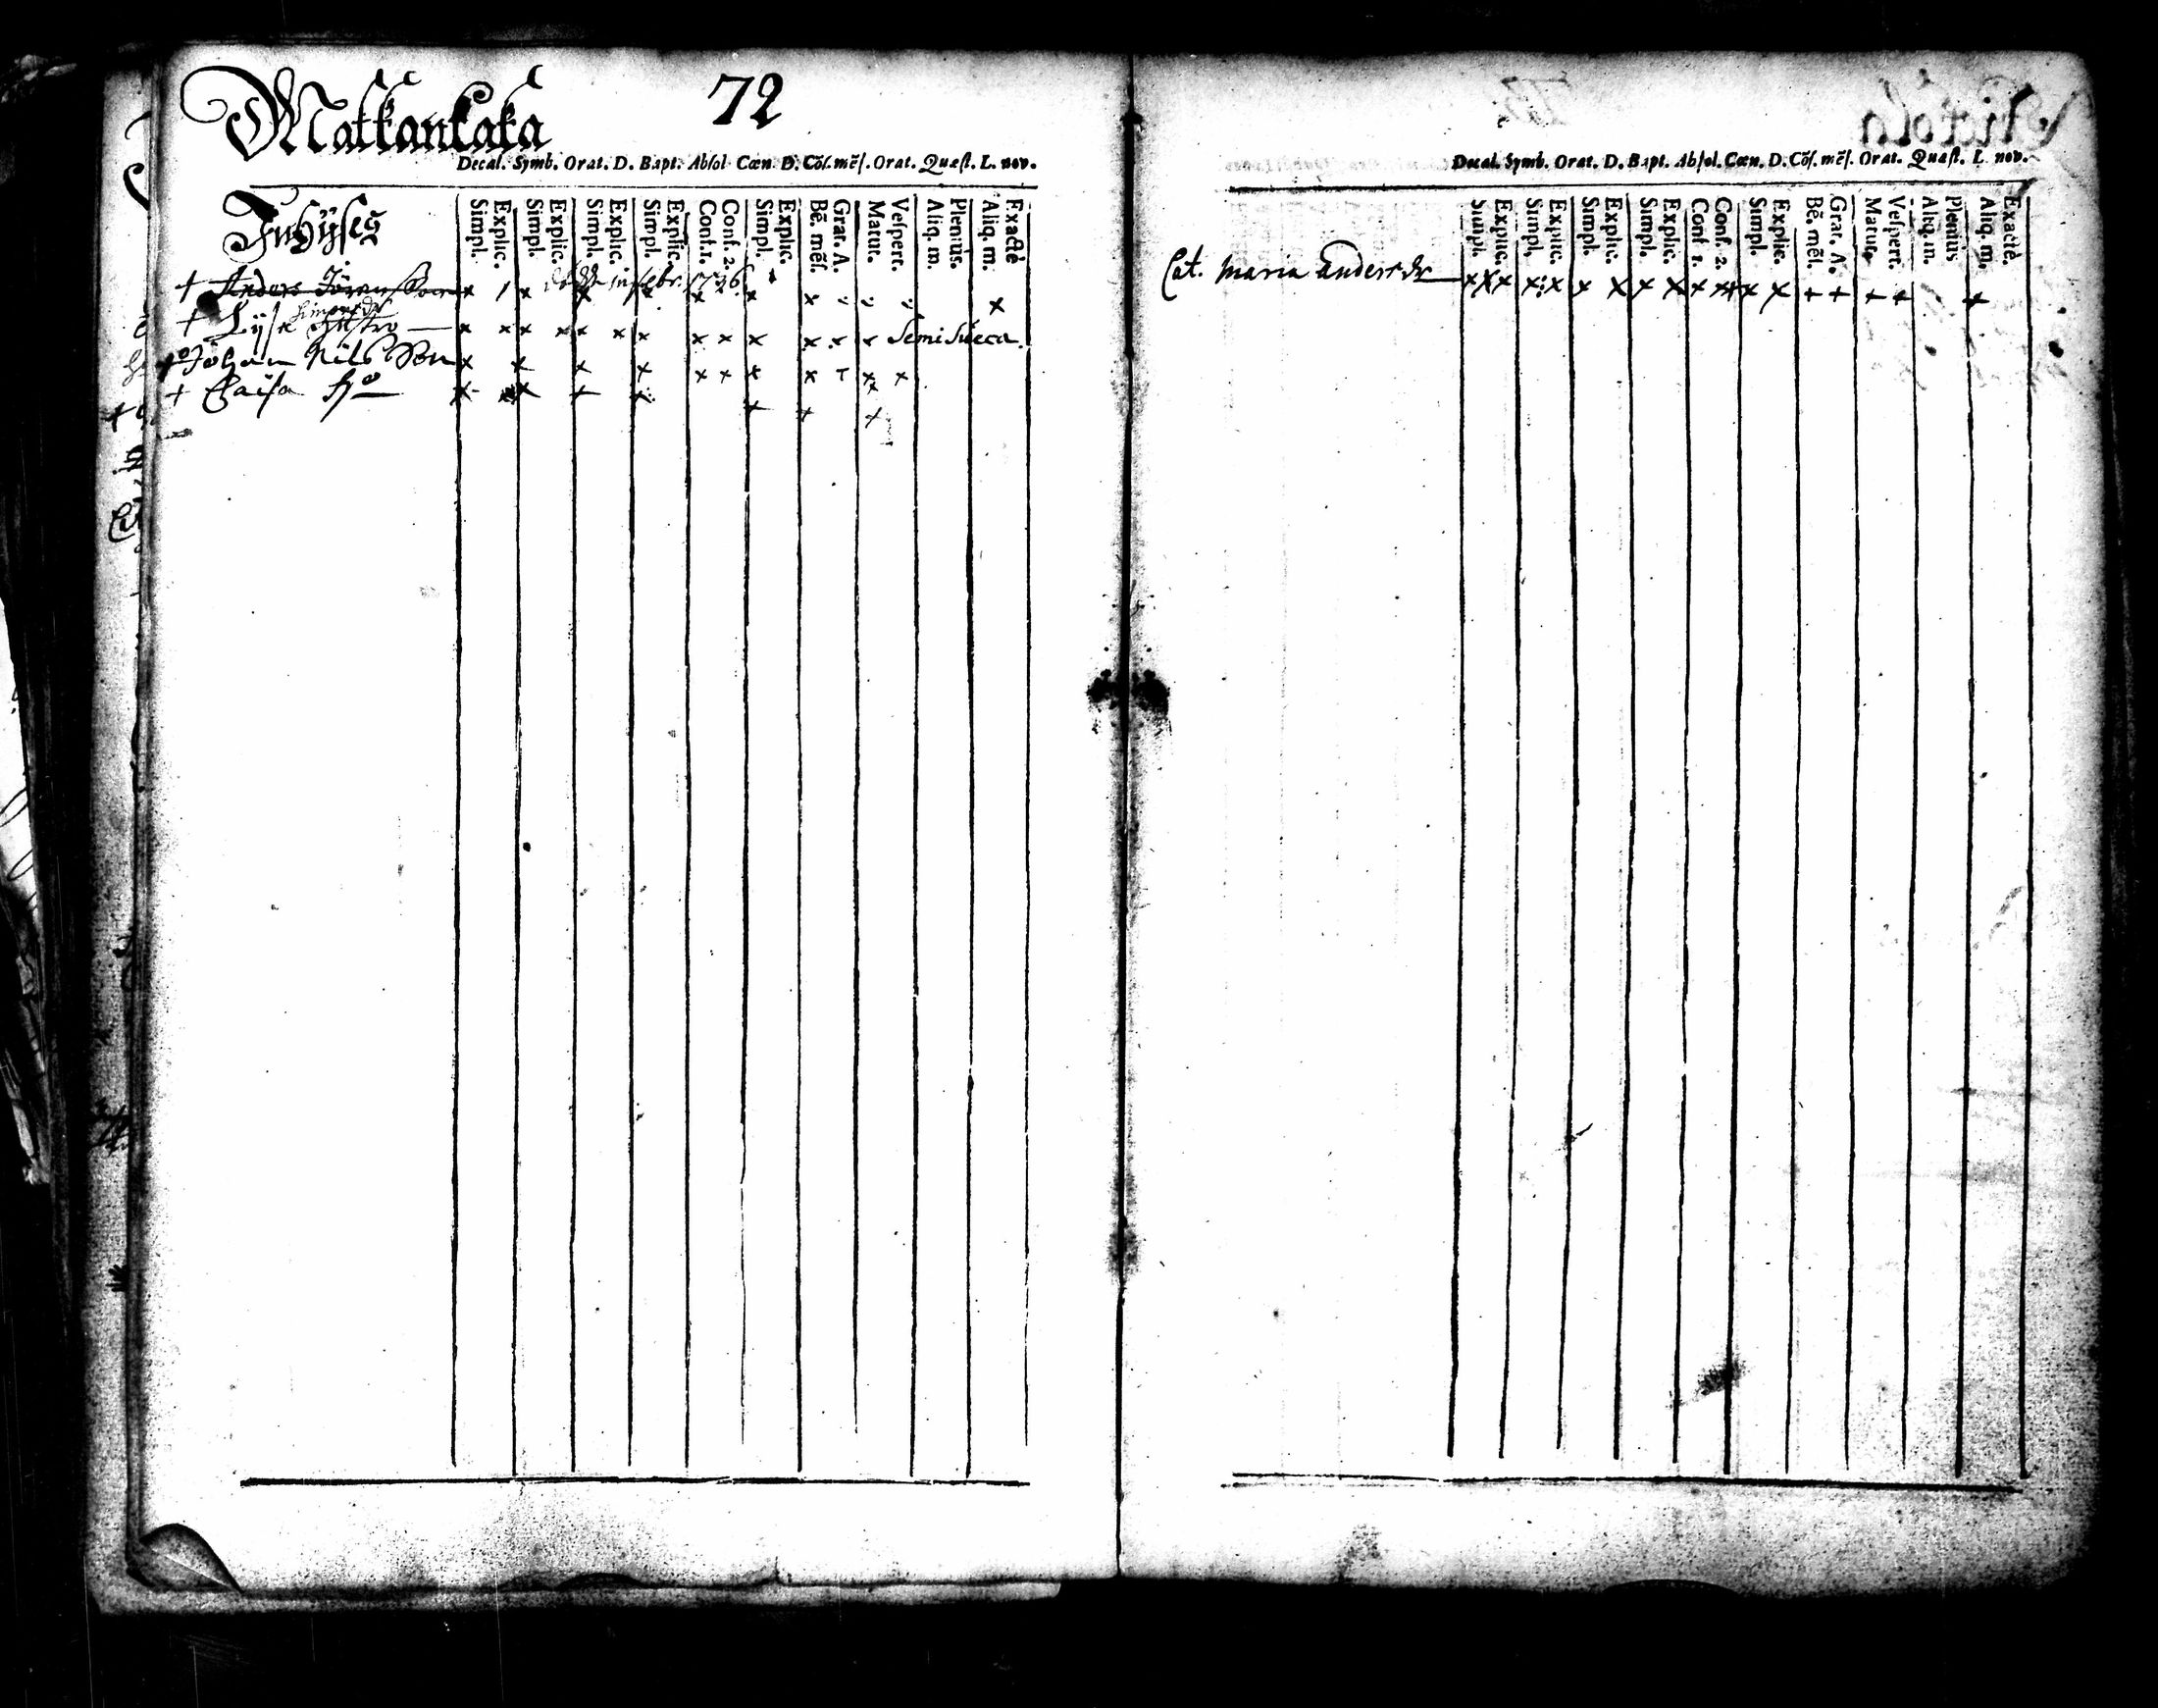 Matkankaka 72
Decal. Symb. Orat. D. Bapt. Absol Cœn. D. Cōf. mēſ. Orat. Quæſt. L. nov.
Inhÿses
Simpl. Explic. Simpl. Explic. Simpl. Explic. Simpl. Explic. Conf. 1. Conf. 2. Simpl. Explic. Bē. mēſ. Grat. A. Matut. Veſpert. Aliq. m. Plenius. Aliq. m. Exactè
+ Anders Jöransson in febr. 1736.
Simonsdr
+ Lysa hustro Semi Sueca.
+ Johan Nils Son
+ Caisa H°
Decal. Symb. Orat. D. Bapt. Abſol. Cœn. D. Cōſ. mēſ. Orat. Quæſt. L. nov.
Simpl. Explic. Simpl. Explic. Simpl. Explic. Simpl. Explic. Conf 1. Conf. 2. Simpl. Explic. Bē. mēſ. Grat. A. Matut. Veſpert. Aliq. m. Plenius Aliq. m. Exactè.
Cat. Maria Andersdr